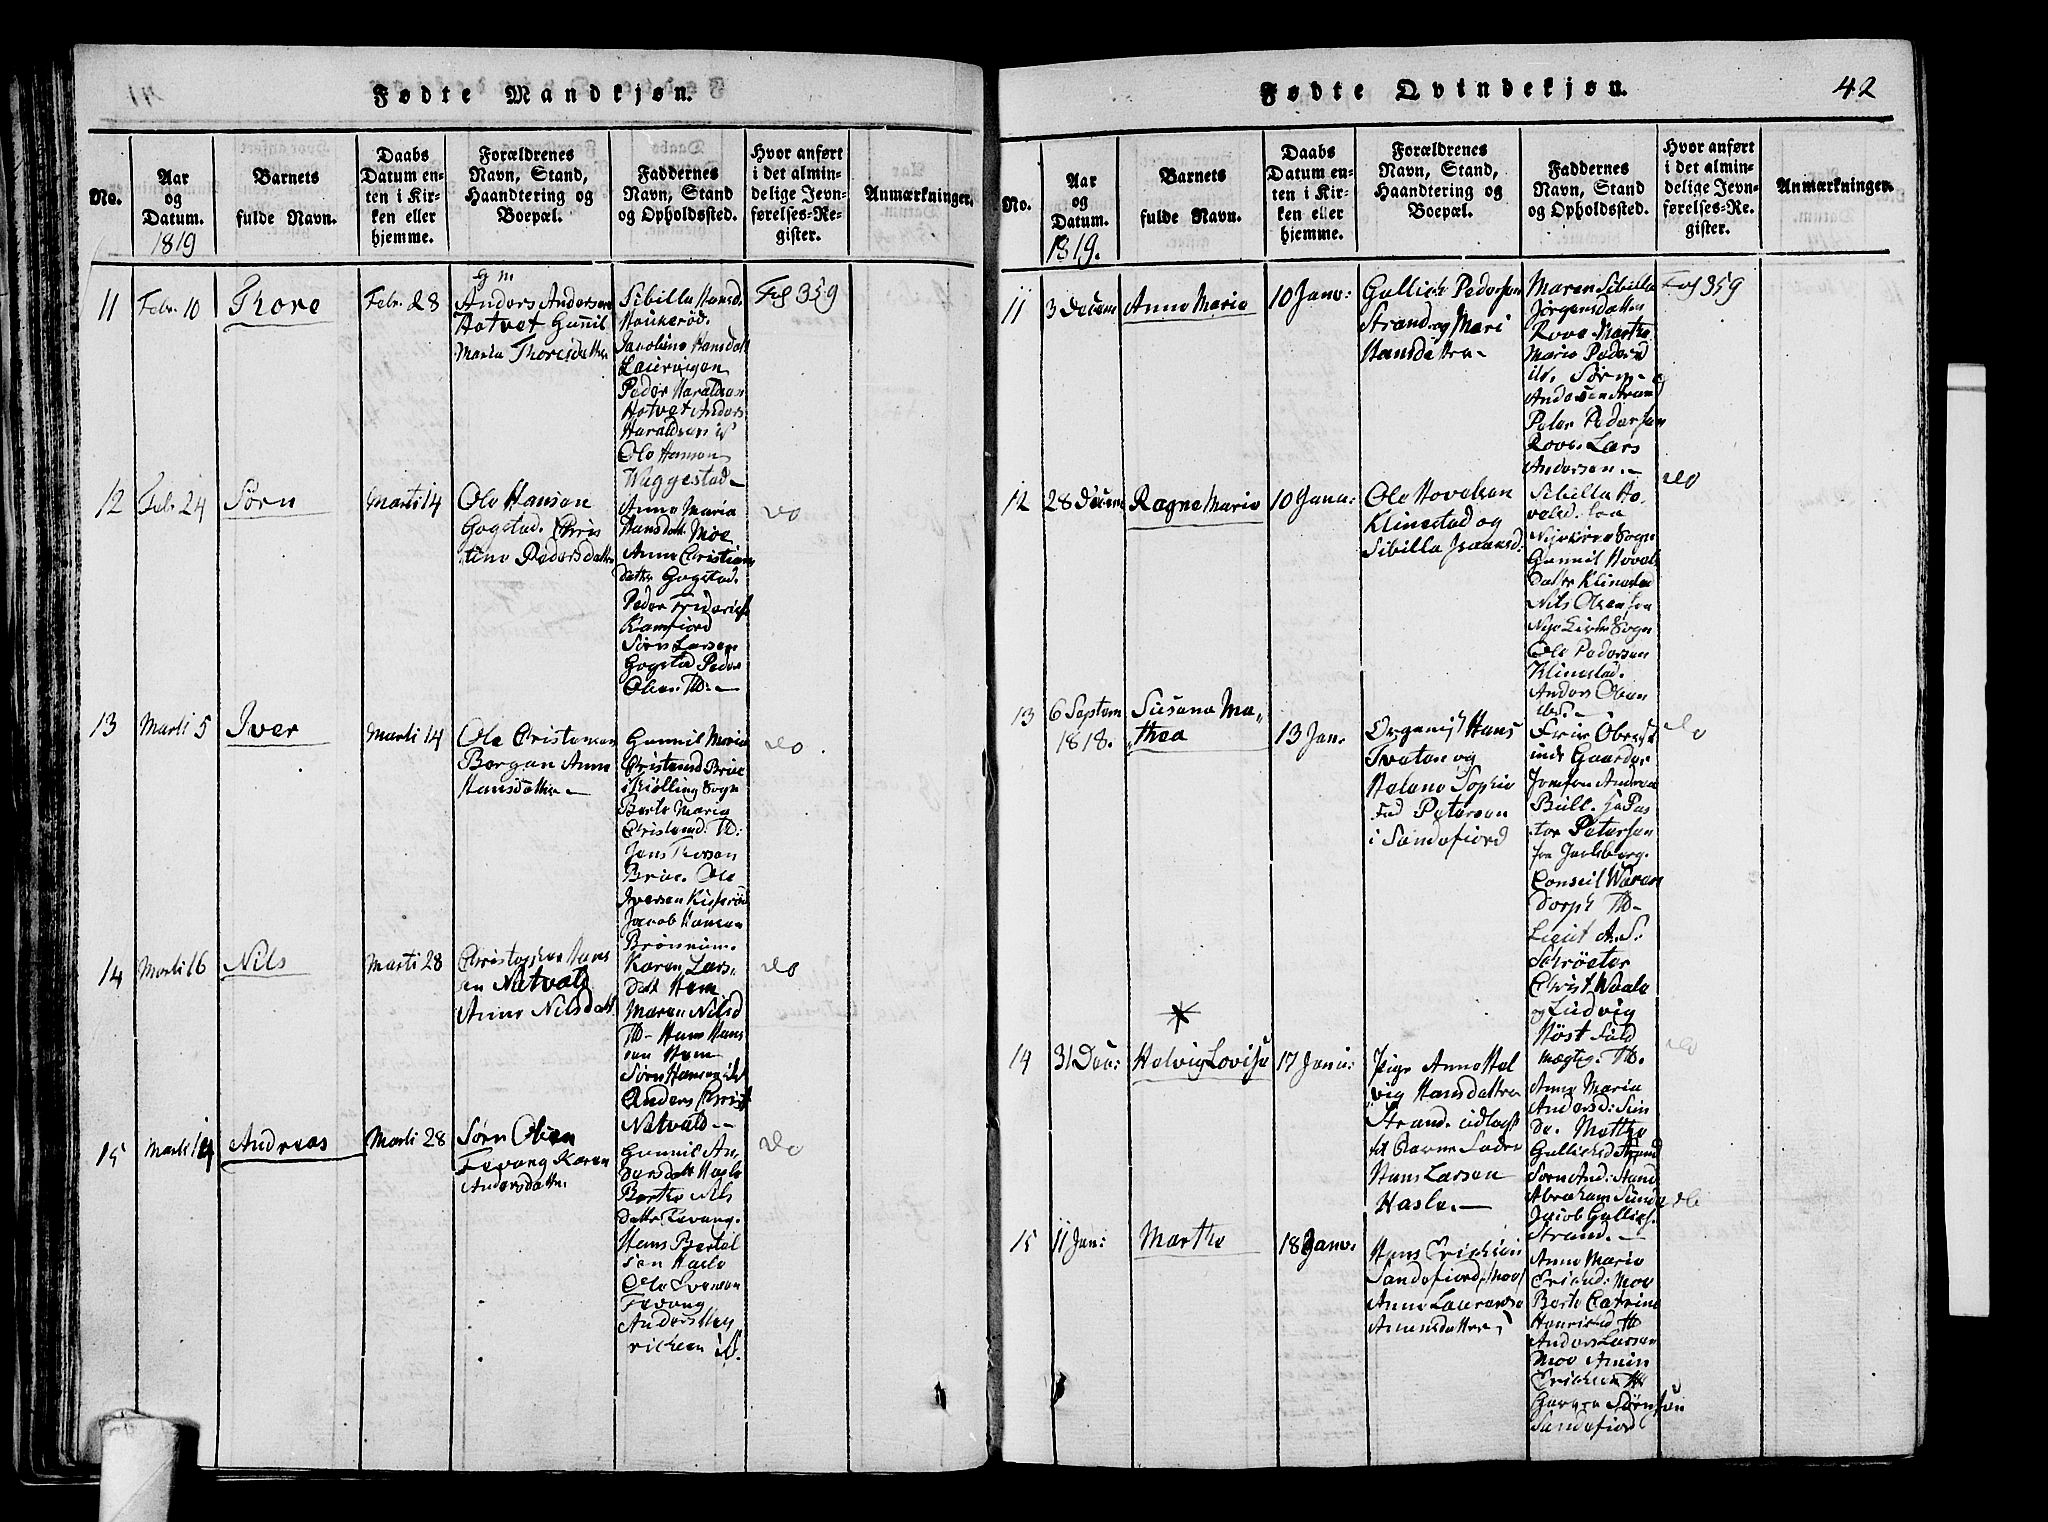 Fødte Mandkjøn.
No.
Aar
og
Datum.
1819
Barnets
fulde Navn.
Daabs
Datum en-
ten i Kir-
ken eller
hjemme.
Forældrenes
Navn, Stand,
Haandtering og
Boepæl.
Faddernes
Navn, Stand
og Opholdssted.
Hvor anført
i det almin-
delige Jevn-
førelses-Re-
gister.
Anmærkninger.
11
Febr. 10
Thore
Febr. 28
g m
Anders Andersen
Hotvet Gunnil
Maria Thoresdatter
Sibilla Hansd.
Haukerød.
Jacobine Hansdatt
Laiervigen
Peder Haraldsen
Hotvet Anders
Haraldsen
Ole Hansen
Weggestad
Fol 359
12
Febr. 24
Sørn
Marti 14
Ole Hansen
Gogstad. Chris
tine Pedersdatter
Anne Maria
Hansdatt Moe
Anne Christians
datter Gogstad.
Peder Friderichs
Kamfiord
Sørn Larsen
Gogstad Peder
Olsen
do
13
Marti 5
Iver
Marti 14
Ole Cristensen
Bergan Anne
Hansdatter
Gunnil Maria
Cristensd Brie
i Kiølling Sogn
Berte Maria
Christensd:
Jens Thorsen
Brie. Ole
Iversen
Jacob Hansen
Brønnum.
do
14
Marti 16
Nils
Marti 28
Christopher Hans
en Natvald
Anne Nilsdatt
Karen Lars
datt Hem
Maren Nilsd
Hans Hans
sen Hem
Sørn Hansen
Anders Christ
Natvald
do
15
Marti 14
Andreas
Marti 28
Sørn Olsen
Fevang Karen
Andersdatter
Gunnil An
dersdatt Hasle
Berthe Nils
datter Fevang.
Hans Bertel
sen Hasle
Ole Evensen
Fevang
Anders Hen
richsen
do
Fødte Qvindekjøn.
42
No.
Aar
og
Datum.
1819.
Barnets
fulde Navn.
Daabs
Datum en-
ten i Kir-
ken eller
hjemme.
Forældrenes
Navn, Stand,
Haandtering og
Boepæl.
Faddernes
Navn, Stand
og Opholdssted.
Hvor anført
i det almin-
delige Jevn-
førelses-Re-
gister.
Anmærkninger.
11
3 Decem
Anne Marie
10 Janv:
Gullich Pedersen
Strand og Mari
Hansdatter
Maren Sibilla
Jørgensdatter
Rove Marthe
Marie Pedersd
Sørn
Andersen Strand
Peder Pedersen
Rove. Lars
Andersen.
Fol 359
12
28 Decem
Ragne Marie
10 Janv:
Ole Hovelsen
Klinestad og
Sibilla Isaaksd:
Sibilla Ho
velsd. fra
Nykirke Sogn
Gunnil Hovels
datter Klinestad
Nils Olsen fra
Nye Kirke Sogn
Ole Pedersen
Klinestad.
Anders Olsen
do
13
6 Septem
1818.
Susana Ma,
"thea
13 Jan.
Organist Hans
Tvaten og
Helene Sophie
fød Petersen
i Sandefiord
Frue Oberst
inde Gaarder
Jomfru Andrea
Bull. Hr Pas
tor Petersen
fra Jarlsberg.
Conseil Waren
dorph
Lieut A. S:
Schrøeter
Christ Waale
og Ludvig
Høst Fuld
mægtig.
do
14
31 Dec:
Helvig Lovise
17 Janv:
Pige Anne Hel
vig Hansdatter
Strand. udlagt
til Barne Fader
Hans Larsen
Hasle.
Anne Maria
Andersd: Sun
de. Marthe
Gullichsd Strand
Sørn And: Strand
Abraham Sunde
Jacob Gullichs.
Strand.
do
15
11 Jan:
Marthe
18 Janv.
Hans Erichsen
Sandefiord, Moe
Anne Laurense
Amundsdatter
Anne Marie
Erichsd: Moe
Berte Catrine
Henrichsd
Anders Larsen
Moe Amun
Erichsen
Sørensen
Sandefiord
do